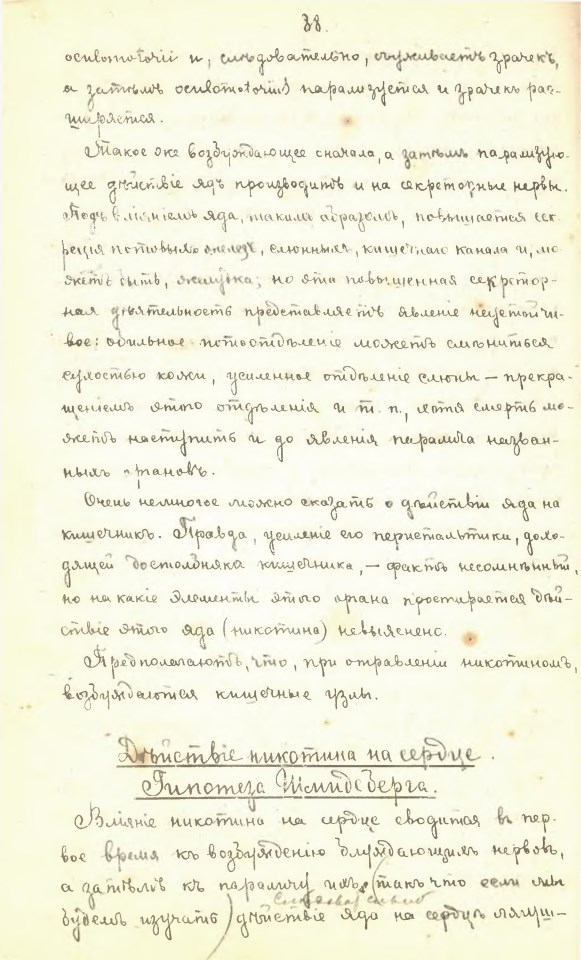 38.
и, слѣдовательно, съуживаетъ зрачекъ,
а затѣмъ парализуется и зрачекъ рас-
ширяется.
Такое же возбуждающее сначала, а затѣмъ парализую-
щее дѣйствіе ядъ производитъ и на секреторные нервы.
Подъ вліяніемъ яда, такимъ образомъ, повышается сек-
реція потовыхъ железъ, слюнныхъ, кишечнаго канала и, мо-
жетъ быть, желудка; но эта повышенная секретор-
ная дѣятельность представляетъ явленіе неустойчи-
вое: обильное потоотдѣленіе можетъ смѣниться
сухостью кожи, усиленное отдѣленіе слюны — прекра-
щеніемъ этого отдѣленія и т. п., хотя смерть мо-
жетъ наступить и до явленія паралича назван-
ныхъ органовъ.
Очень немногое можно сказать о дѣйствіи яда на
кишечникъ. Правда, усиленіе его перистальтики, дохо-
дящей до столбняка кишечника, — фактъ несомнѣнный,
но на какіе элементы этого органа простирается дѣй-
ствіе этого яда (никотина) невыяснено.
Предполагаютъ, что, при отравленіи никотиномъ,
возбуждаются кишечные узлы.
Дѣйствіе никотина на сердце.
Гипотеза Шмидеберга.
Вліяніе никотина на сердце сводится въ пер-
вое время къ возбужденію блуждающихъ нервовъ,
а затѣмъ къ параличу ихъ, (такъ что если мы
слѣдовательно
будемъ изучать) дѣйствіе яда на сердцѣ лягуш-